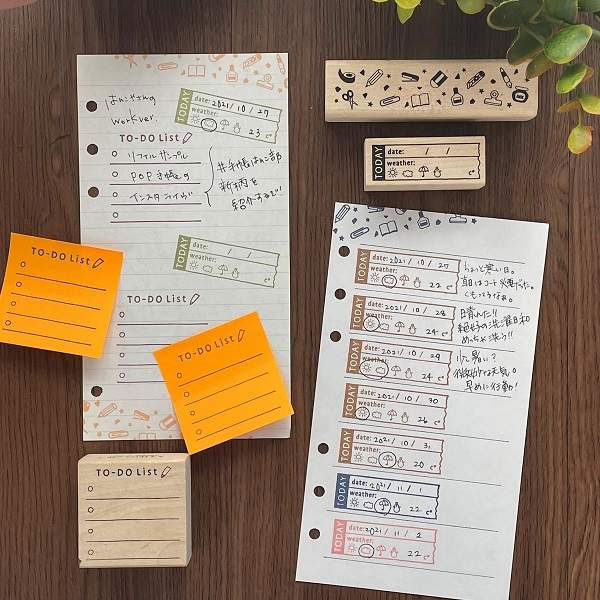 はんこやさんの
work ver.
TODAY
date: 2021 / 10 / 27
weather:
23 ℃
TO-DO List
リフィル サンプル
POP 手帳との
インスタライブ
#手帳はんこ部
新柄を
紹介するど!
TODAY
date: / /
weather:
TO-DO List
TO-DO List
TO-DO List
TO-DO List
TODAY
date: / /
weather:
TODAY
date: 2021 / 10 / 27
weather:
22 ℃
ちょっと寒い日。
TODAY
date: 2021 / 10 / 28
weather:
24 ℃
日晴れた!!
絶好の洗濯日和
めっちゃ洗う!!
TODAY
date: 2021 / 10 / 29
weather:
24 ℃
少し暑い?
微妙な天気。
早めに行動!
TODAY
date: 2021 / 10 / 30
weather:
26 ℃
TODAY
date: 2021 / 10 / 31
weather:
20 ℃
TODAY
date: 2021 / 11 / 1
weather:
22 ℃
TODAY
date: 2021 / 11 / 2
weather:
22 ℃